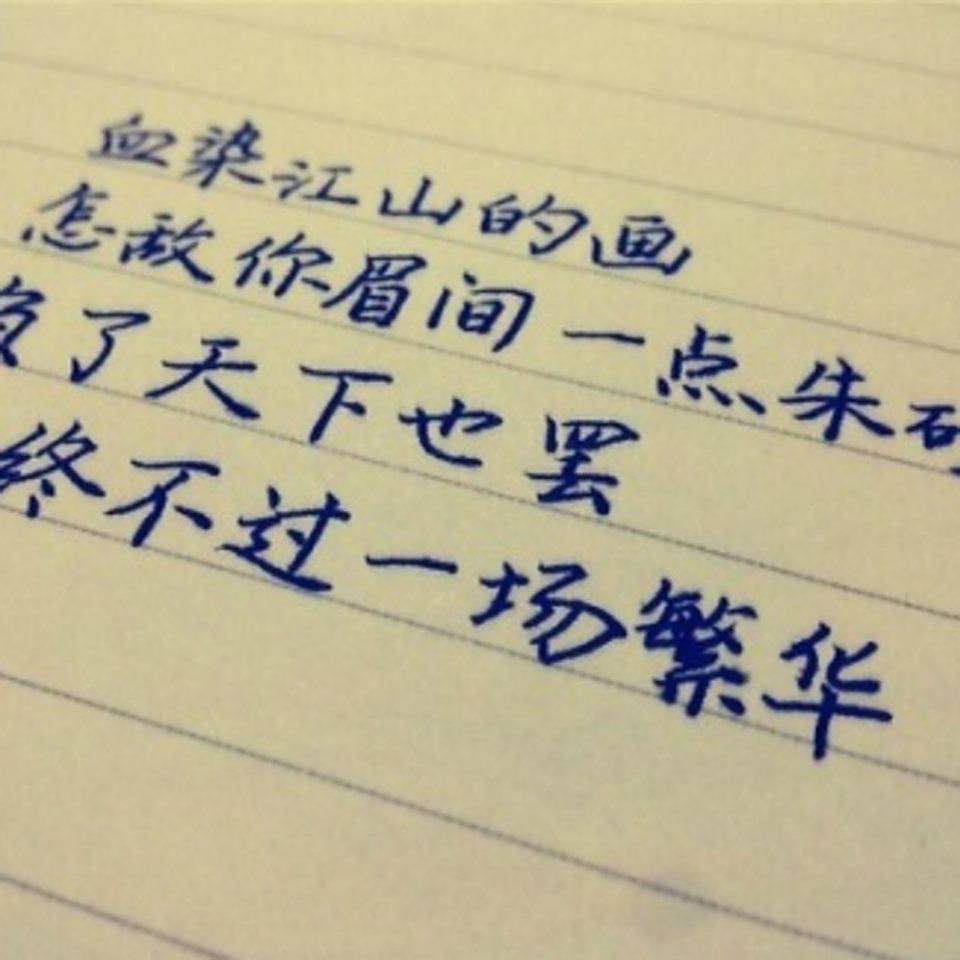 血染江山的画
怎敌你眉间一点朱砂
负了天下也罢
终不过一场繁华